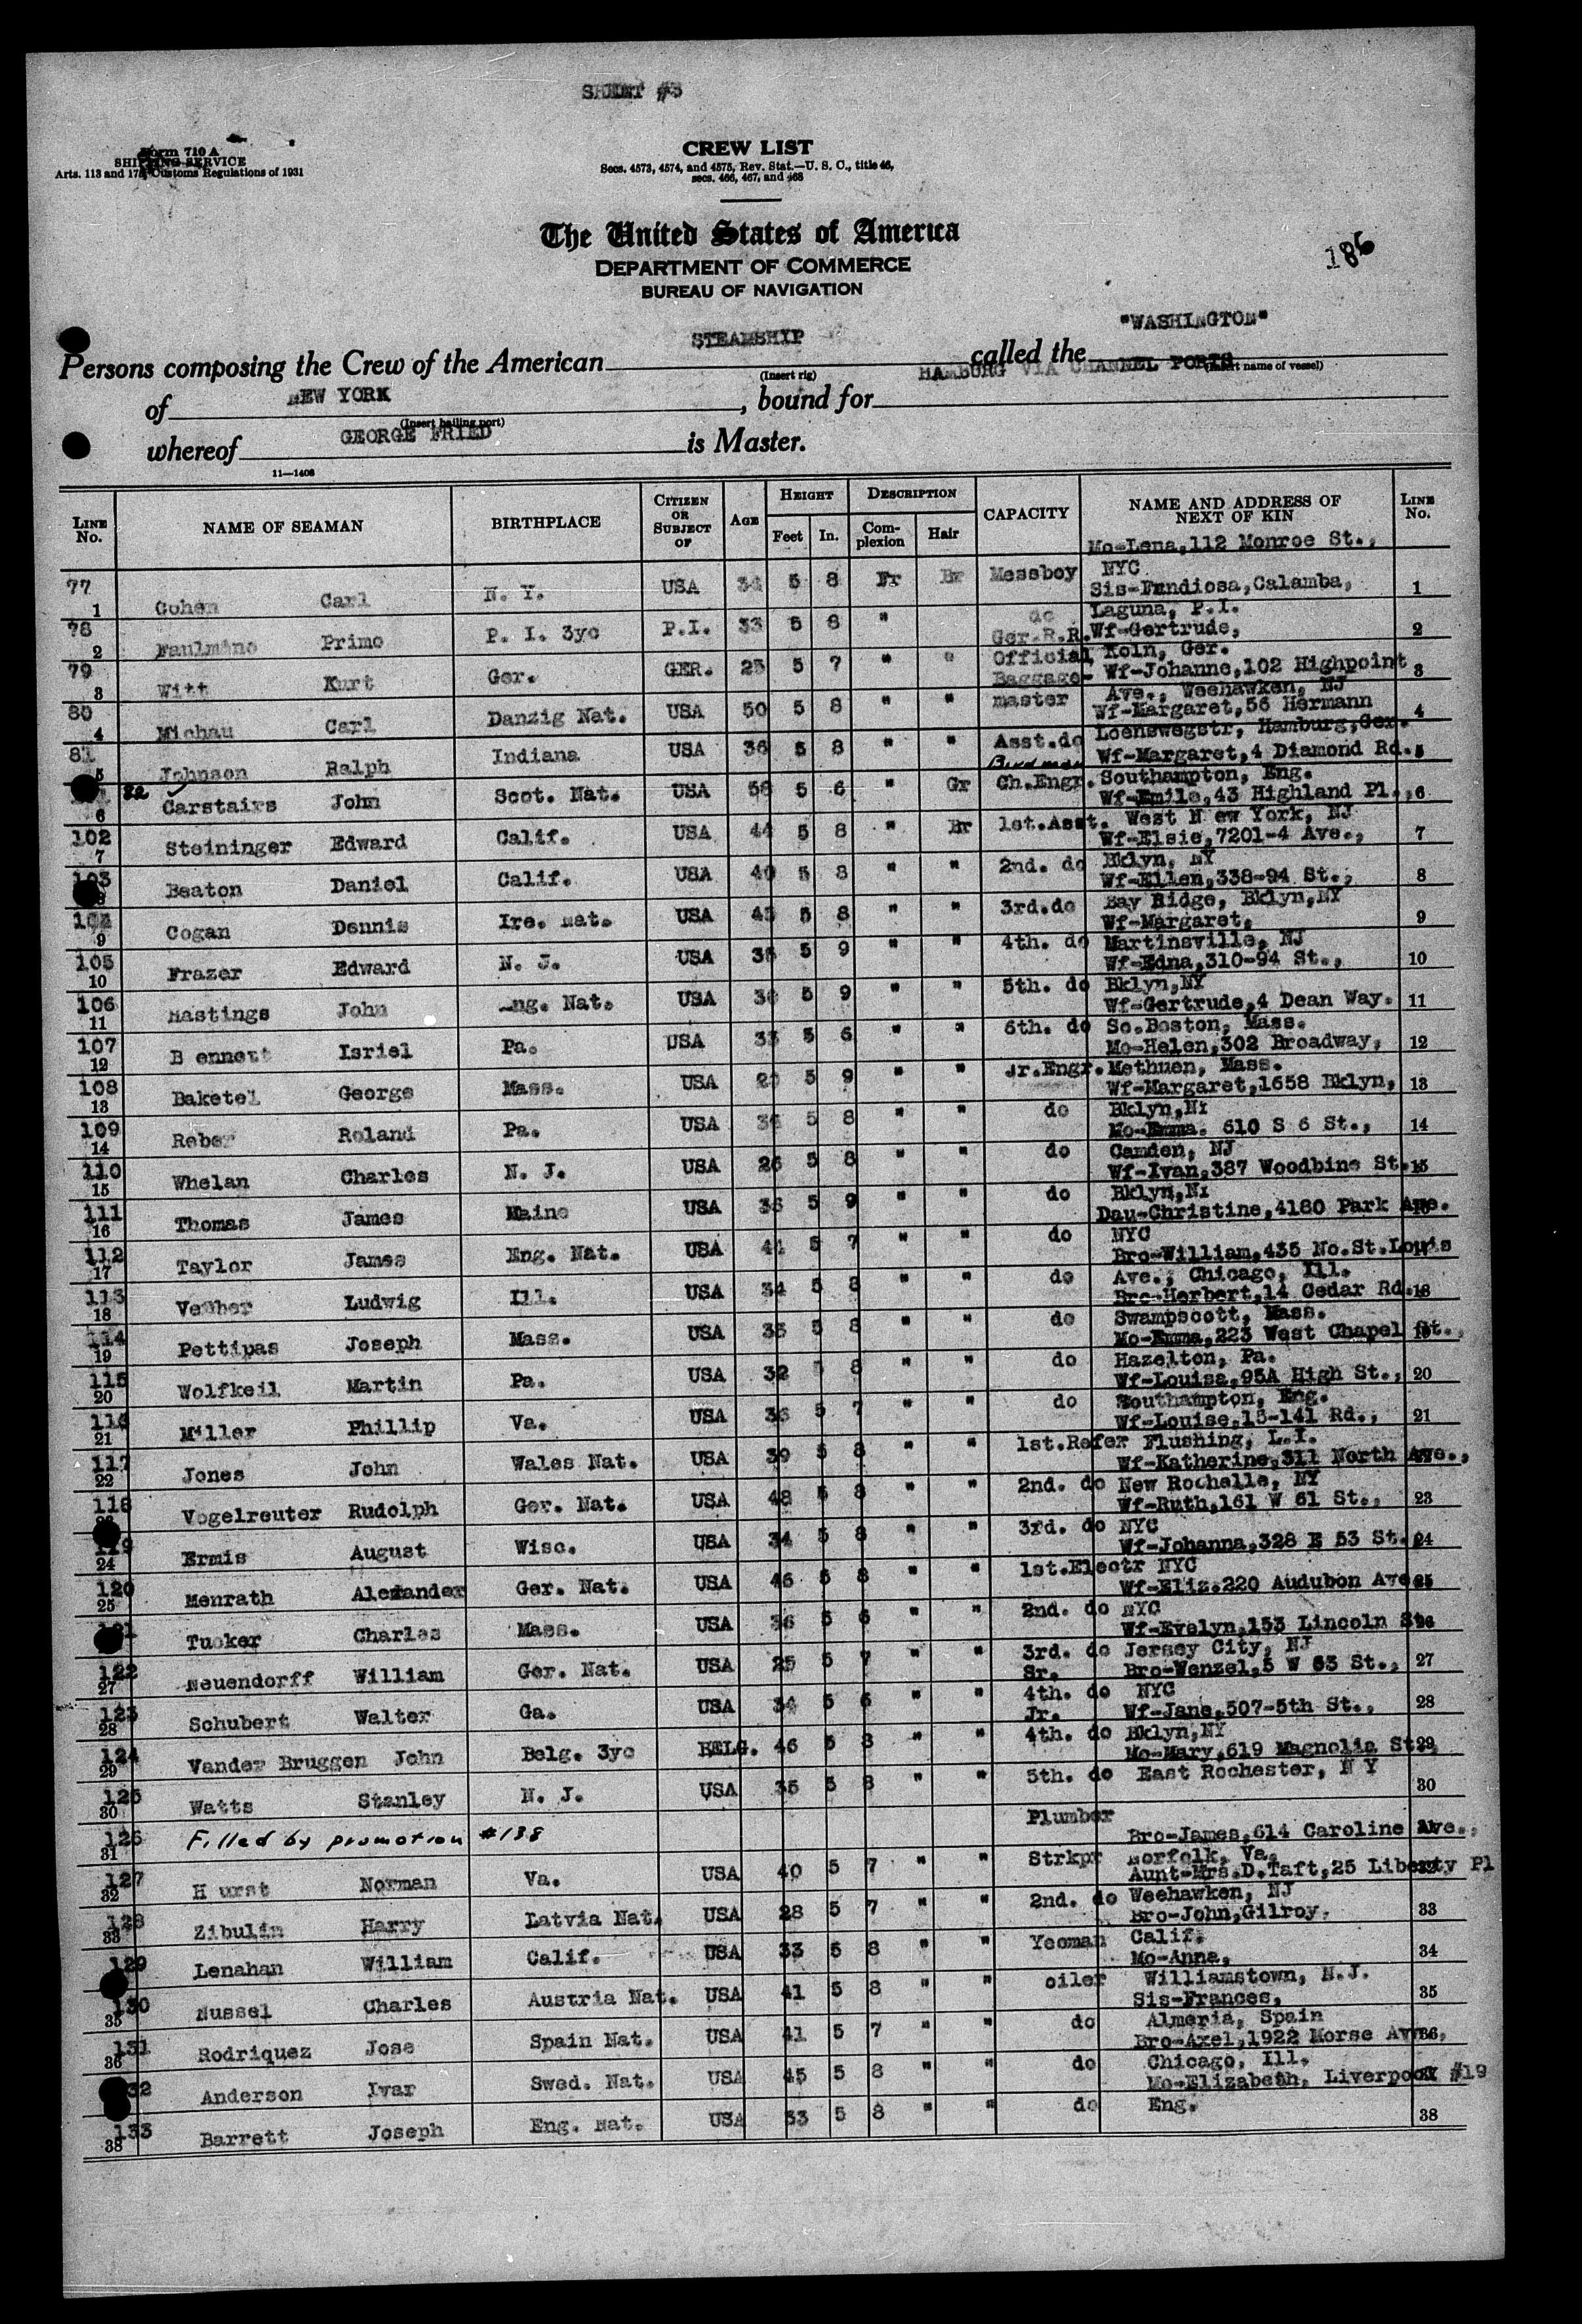 SHEET #3
Form 710 A
SHIPPING SERVICE
Arts. 113 and 175, Customs Regulations of 1931
CREW LIST
Secs. 4573, 4574, and 4575, Rev. Stat.—U. S. C., title 46,
secs. 466, 467, and 468
The United States of America
DEPARTMENT OF COMMERCE
BUREAU OF NAVIGATION
186
Persons composing the Crew of the American STEAMSHIP called the "WASHINGTON"
(Insert rig) (Insert name of vessel)
of NEW YORK, bound for HAMBURG VIA CHANNEL PORTS
(Insert hailing port)
whereof GEORGE FRIED is Master.
11—1406
LINE No. NAME OF SEAMAN BIRTHPLACE CITIZEN OR SUBJECT OF AGE HEIGHT Feet In. DESCRIPTION Complexion Hair CAPACITY NAME AND ADDRESS OF NEXT OF KIN LINE No.
77 1 Cohen Carl N. Y. USA 34 5 8 Fr Br Messboy Mo-Lena,112 Monroe St., NYC 1
78 2 Primo P. I. 3yc P.I. 33 5 8 " do Calamba, Laguna, P.I. 2
79 3 Witt Kurt Ger. GER. 25 5 7 " " Ger.R.R. Official Wf-Gertrude, Koln, Ger. 3
80 4 Michau Carl Danzig Nat. USA 50 5 8 " " Baggage-master Wf-Johanne,102 Highpoint Ave., Weehawken, NJ 4
81 5 Johnson Ralph Indiana USA 36 5 8 " " Asst.do Wf-Margaret,56 Hermann Loenswegstr, Hamburg,Ger. 5
82 6 Carstairs John Scot. Nat. USA 58 5 6 " Gr Ch.Engr. Wf-Margaret,4 Diamond Rd. Southampton, Eng. 6
102 7 Steininger Edward Calif. USA 44 5 8 " Br 1st.Asst. Wf-Emile,43 Highland Pl., West N ew York, NJ 7
103 8 Beaton Daniel Calif. USA 40 5 8 " " 2nd. do Wf-Elsie,7201-4 Ave., Bklyn, NY 8
104 9 Cogan Dennis Ire. Nat. USA 43 5 8 " " 3rd.do Wf-Ellen,338-94 St., Bay Ridge, Bklyn,NY 9
105 10 Frazer Edward N. J. USA 5 9 " " 4th. do Wf-Margaret, Martinsville, NJ 10
106 11 Hastings John Eng. Nat. USA 5 9 " " 5th. do Wf-Edna,310-94 St., Bklyn,NY 11
107 12 B ennett Isriel Pa. USA 33 5 6 " " 6th. do Wf-Gertrude,4 Dean Way. So.Boston, Mass. 12
108 13 Baketel George Mass. USA 5 9 " " Jr.Engr. Mo-Helen,302 Broadway, Methuen, Mass. 13
109 14 Reber Roland Pa. USA 5 8 " " do Wf-Margaret,1658 Bklyn, Bklyn,NY 14
110 15 Whelan Charles N. J. USA 26 5 8 " " do Mo-Emma. 610 S 6 St., Camden, NJ 15
111 16 Thomas James Maine USA 36 5 9 " " do Wf-Ivan,387 Woodbine St. Bklyn,NY
112 17 Taylor James Eng. Nat. USA 44 5 7 " " do Dau-Christine,4180 Park Ave. NYC
113 18 Ludwig Ill. USA 34 5 8 " " do Bro-William,435 No.St.Louis Ave., Chicago, Ill. 18
114 19 Pettipas Joseph Mass. USA 35 5 8 " " do Bro-Herbert,14 Cedar Rd. Swampscott, Mass. 19
115 20 Wolfkeil Martin Pa. USA 32 8 " " do Mo-Emma,223 West Chapel St., Hazelton, Pa. 20
116 21 Miller Phillip Va. USA 36 5 7 " " do Wf-Louisa,95A High St., Southampton, Eng. 21
117 22 Jones John Wales Nat. USA 39 5 8 " " 1st.Refer Wf-Louise,15-141 Rd., Flushing, L.I.
118 Vogelreuter Rudolph Ger. Nat. USA 48 5 8 " " 2nd. do Wf-Katherine,311 North Ave., New Rochelle, NY 23
119 24 Ermis August Wisc. USA 34 5 8 " " 3rd. do Wf-Ruth,161 W 61 St., NYC 24
120 25 Menrath Alexander Ger. Nat. USA 46 5 8 " " 1st.Electr Wf-Johanna,328 E 53 St., NYC 25
121 Tucker Charles Mass. USA 36 5 6 " " 2nd. do Wf-Eliz.220 Audubon Ave. NYC 26
122 27 Neuendorff William Ger. Nat. USA 25 5 7 " " 3rd. do Wf-Evelyn,153 Lincoln St Jersey City, NJ 27
123 28 Schubert Walter Ga. USA 34 5 6 " " Sr. 4th. do Bro-Wenzel,5 W 63 St., NYC 28
124 29 Vander Bruggen John Belg. 3yc BELG. 46 5 8 " " Jr. 4th. do Wf-Jane,507-5th St., Bklyn,NY 29
125 30 Watts Stanley N. J. USA 35 5 8 " " 5th. do Mo-Mary,619 Magnolia St., East Rochester, N Y 30
126 31 Filled by promotion #138 Plumber
127 32 H urst Norman Va. USA 40 5 7 " " Strkpr Bro-James,614 Caroline Ave., Norfolk, Va.
128 33 Zibulin Harry Latvia Nat. USA 28 5 7 " " 2nd. do Aunt-Mrs.D.Taft,25 Liberty Pl Weehawken, NJ 33
129 Lenahan William Calif. USA 33 5 8 " " Yeoman Bro-John,Gilroy, Calif. 34
130 35 Nussel Charles Austria Nat. USA 41 5 8 " " oiler Mo-Anna, Williamstown, N.J. 35
131 36 Rodriquez Jose Spain Nat. USA 41 5 7 " " do Sis-Frances, Almeria, Spain 36
132 Anderson Ivar Swed. Nat. USA 45 5 8 " " do Bro-Axel,1922 Morse Ave., Chicago, Ill.
133 38 Barrett Joseph Eng. Nat. USA 33 5 8 " " do Mo-Elizabeth, Liverpool #19 Eng. 38